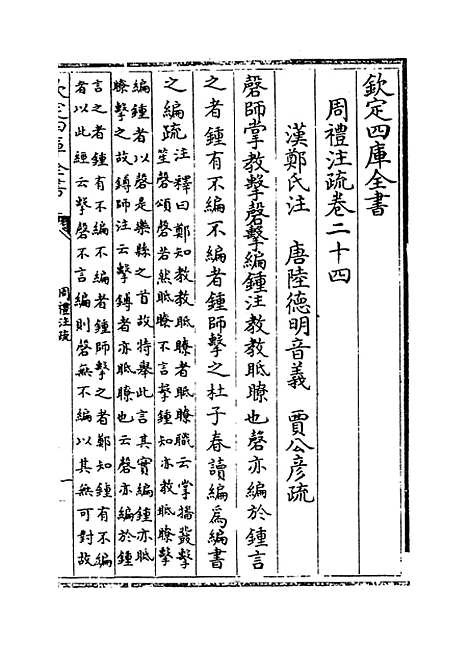 欽定四庫全書
周禮注疏卷二十四
漢鄭氏注　唐陸德明音義　賈公彥疏
磬師掌教擊磬擊編鍾注教教眡瞭也磬亦編於鍾言
之者鍾有不編不編者鍾師擊之杜子春讀編爲編書
之編疏注釋曰鄭知教教眡瞭者眡瞭職云掌播鼗擊
笙磬頌磬若然眡瞭不言擊鍾知亦教眡瞭擊
編鍾者以磬是樂縣之首故特舉此言其實編鍾亦眡
瞭擊之故鎛師注云擊鎛者亦眡瞭也云磬亦編於鍾
言之者鍾有不編不編者鍾師擊之者鄭知鍾有不編
者以此經云擊磬不言編則磬無不編以其無可對故
欽定四庫全書
周禮注疏
一